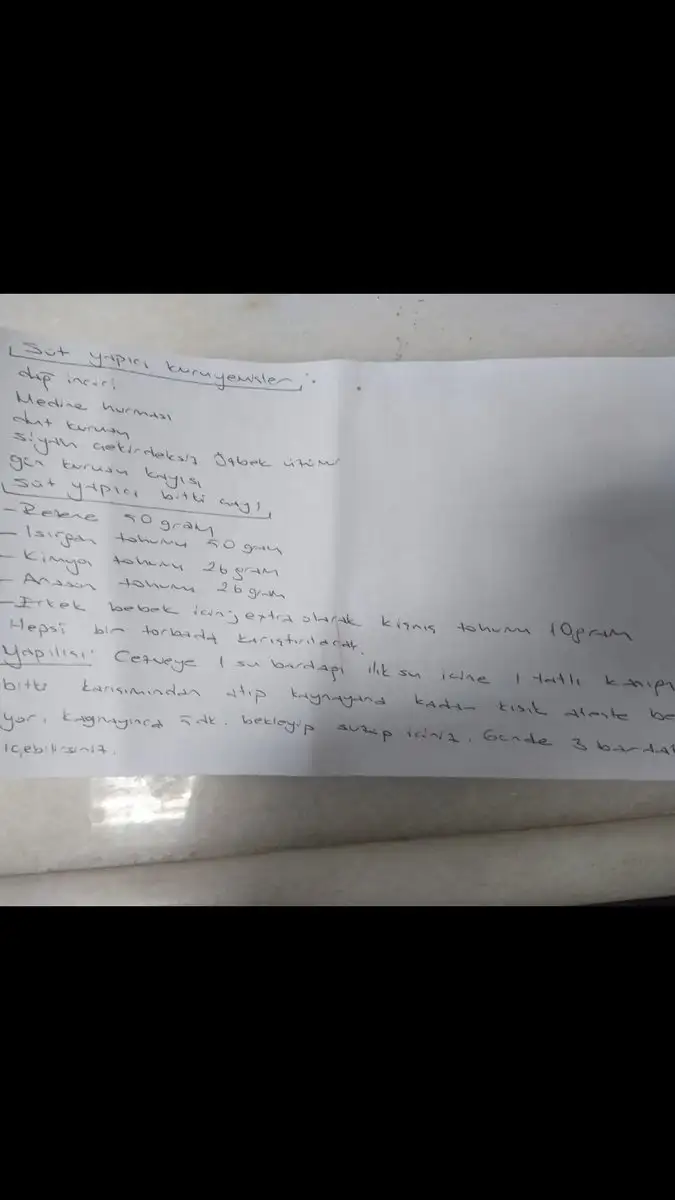 Süt yapıcı kuruyemişler:
dağ inciri
Medine hurması
dut kurusu
siyah çekirdeksiz Özbek üzümü
gün kurusu kayısı
Süt yapıcı bitki çayı
- Rezene 50 gram
- Isırgan tohumu 50 gram
- Kimyon tohumu 26 gram
- Anason tohumu 26 gram
- Erkek bebek için; extra olarak kişniş tohumu 10 gram
Hepsi bir torbada karıştırılacak.
Yapılışı: Cezveye 1 su bardağı ılık su içine 1 tatlı kaşığı
bitki karışımından atıp kaynayana kadar kısık ateşte be
yor, kaynayınca 5 dk. bekleyip süzüp içiniz. Günde 3 bardak
içebilirsiniz.